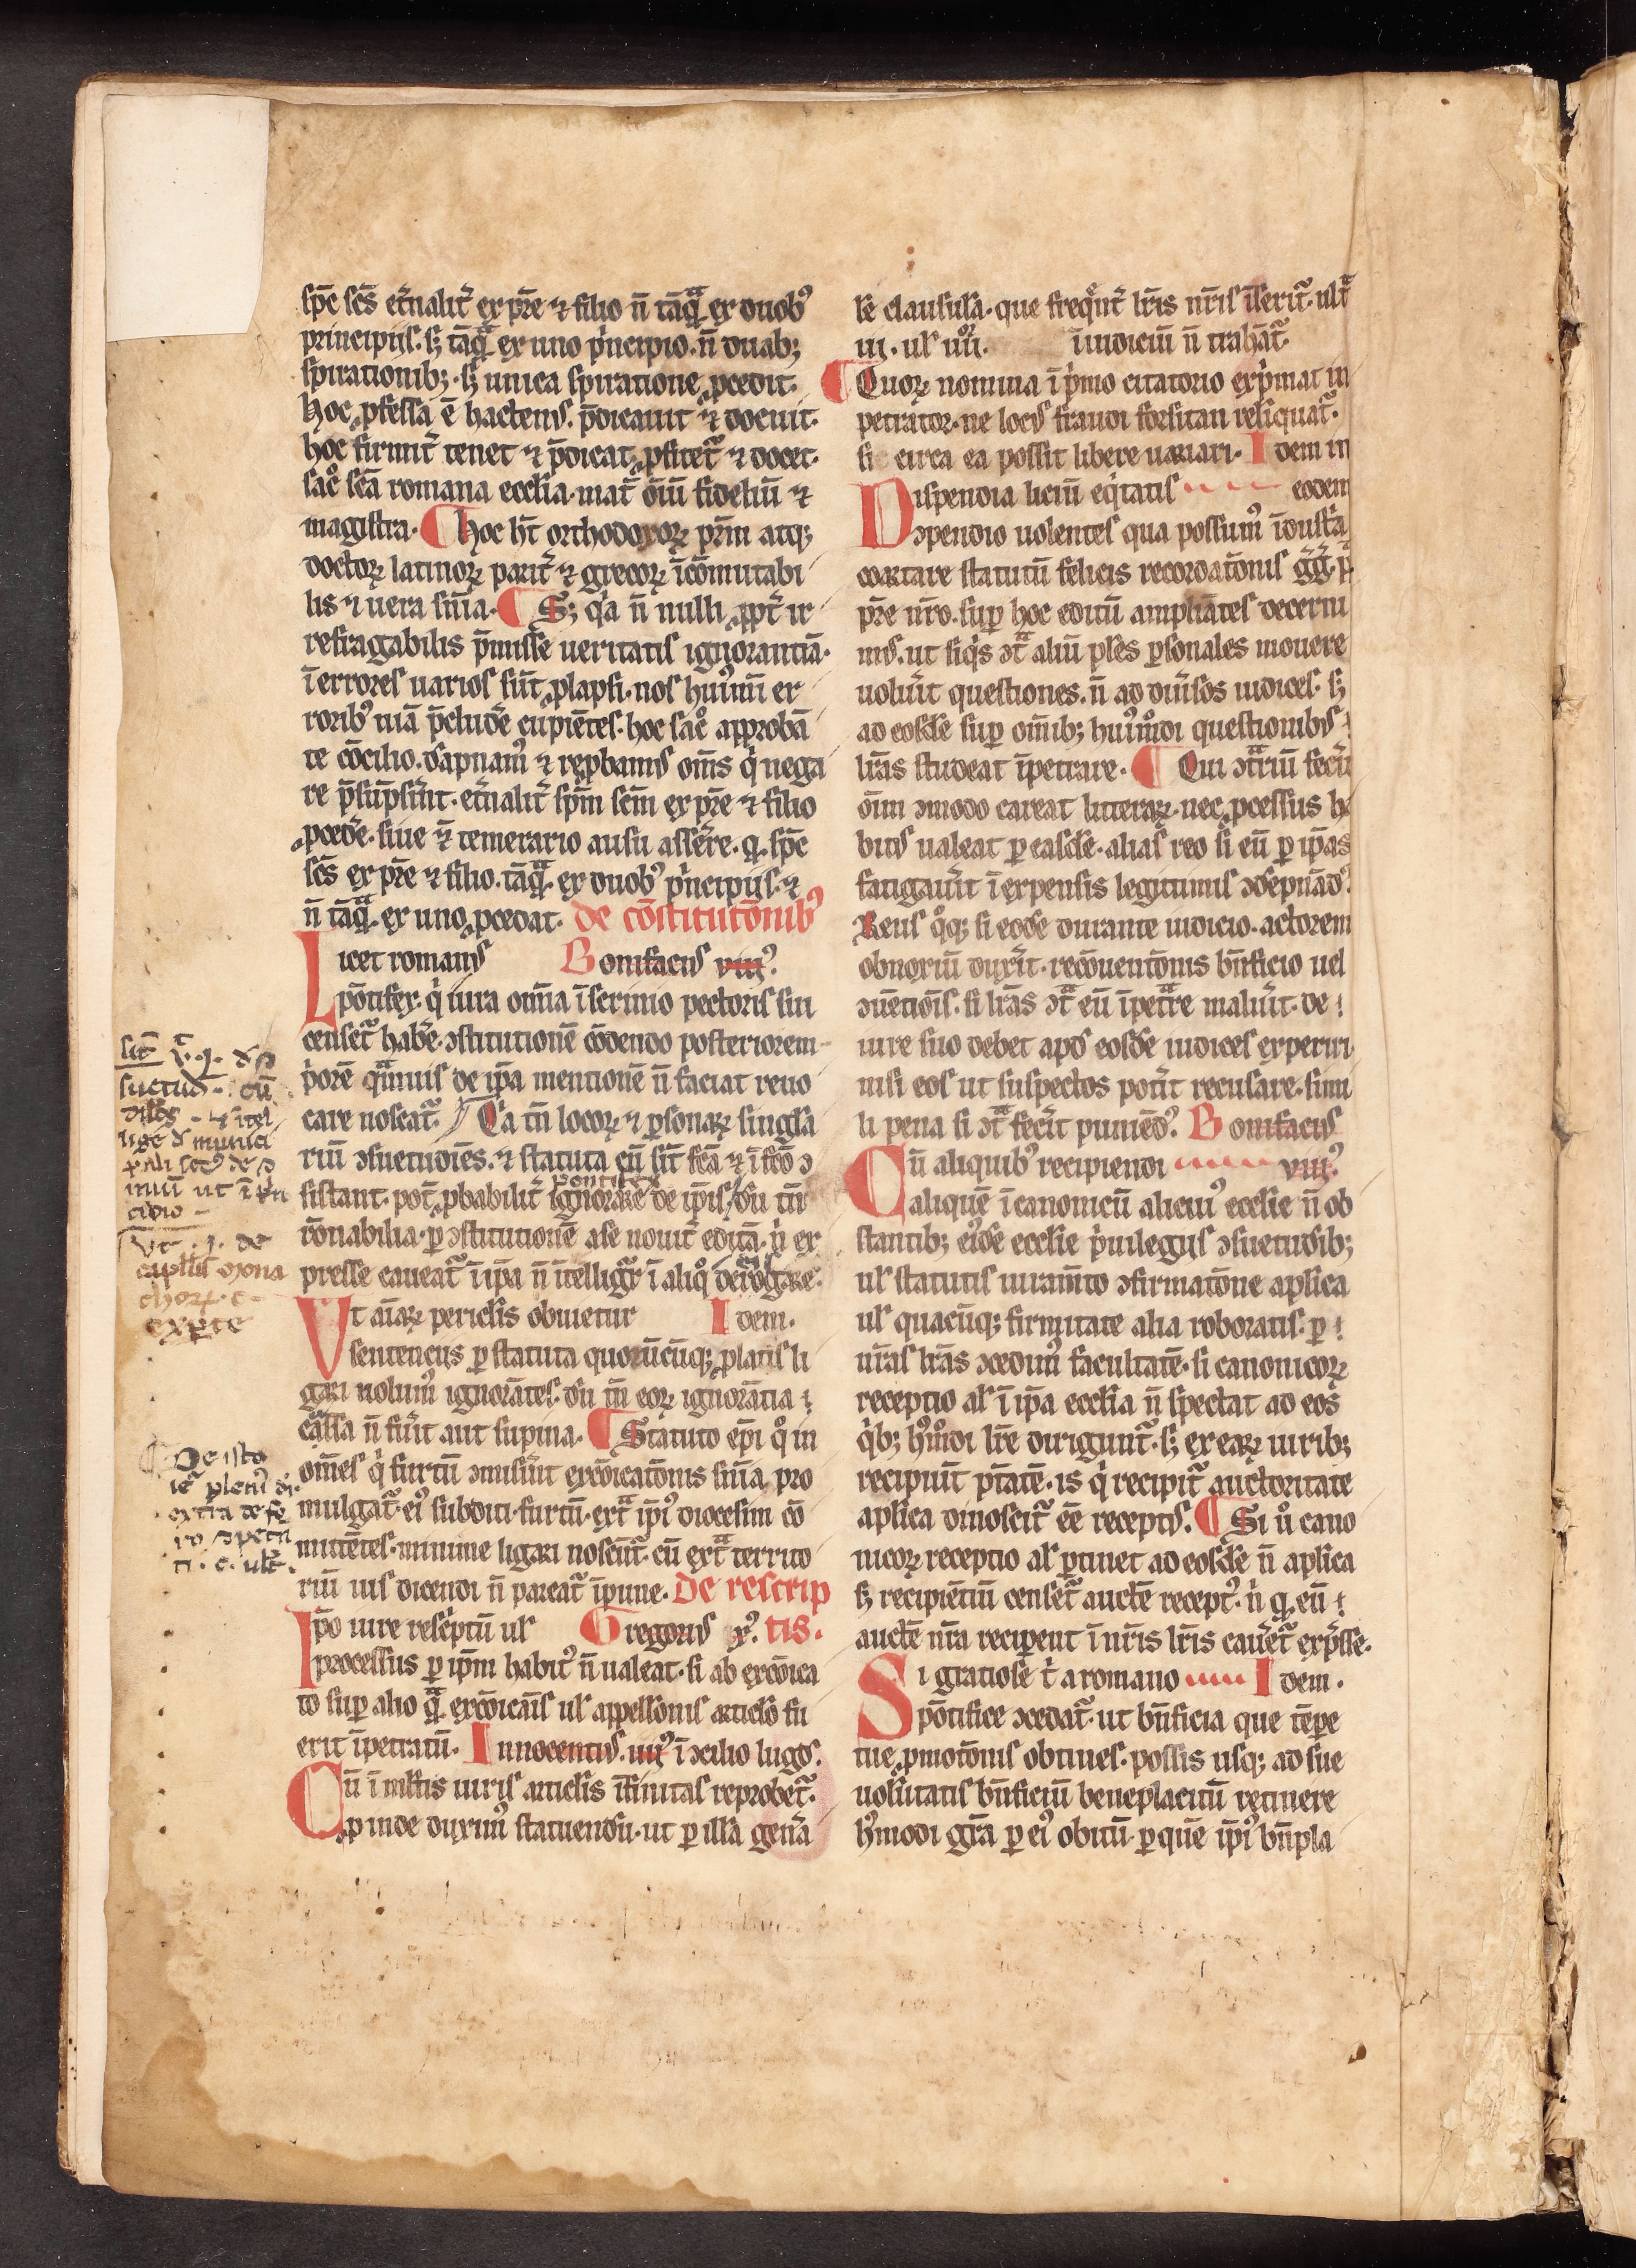 sp̄c sc̄s et̾nalit̾ ex pr̄e ⁊ filio n̄ tāqͣ ex duobꝰ
principijs· sꝫ tāqͣ ex uno pͥncipio· n̄ duabꝫ
spirationibꝫ· sꝫ unica spiratione ꝓcedit·
hoc ꝓfessa ē hactenꝰ· p̄dicauit ⁊ docuit·
hoc firmit̾ tenet ⁊ p̄dicat ꝓfitetᷣ ⁊ docet·
sac̊ sc̄a romana eccl̄ia· mat̾ oīū fideliū ⁊
magistra· ¶ hoc hn̄t orthodoxoꝝ pr̄m atqꝫ
doctoꝝ latinoꝝ parit̾ ⁊ grecoꝝ īcōmutabi
lis ⁊ uera sn̄ia· ¶ Sꝫ qͥa n̄ nulli ꝓpt̾ ir
refragabilis p̄misse ueritatis ignorantiā·
ī errores uarios sūt ꝓlapsi· nos huiꝰmōi er
roribꝰ uiā p̄cludᷣe cupiētes· hoc sac̊ approbā
te cōcilio· dāpnamꝰ ⁊ reꝓbamꝰ om̄s qͥ nega
re p̄sūpsᷣint· et̾nalit̾ sp̄m sc̄m ex pr̄e ⁊ filio
ꝓcedᷣe· siue ⁊̄ temerario ausu assᷣere· ꝙ sp̄c
sc̄s ex pr̄e ⁊ filio· tāqͣ· ex duobꝰ pͥncipijs· ⁊
n̄ tāqͣ· ex uno ꝓcedat· de cōstitutōnibꝰ
Licet romanꝰ Bonifaciꝰ viijꝰ·
pōtifex· qͥ iura omīa ī scrinio pectoris sui
censetᷣ habᷣe· ꝯstitutionē cōdendo posteriorem
pͥorē qͣmuis de ip̄a mentionē n̄ faciat reuo
care noscatᷣ· ¶ Qͥa tn̄ locoꝝ ⁊ ꝑsonaꝝ singla
riū ꝯsuetudiēs· ⁊ statuta cū sīt fc̄a ⁊ ī fc̄o ꝯ
pontifex
sistant· pot̄ ꝓbabilit̾ ignorare de ip̄is· dū tn̄
rōnabilia· ꝑ ꝯstitutionē a se nouit̾ editā· nͥ ex
presse caueatᷣ ī ip̄a n̄ ītelligitᷣ ī aliqͦ derogare·
Ut aīaꝝ pericl̄is obuietur Idem·
sentenciis ꝑ statuta quoꝝcūqꝫ ꝓlatis li
gari nolumꝰ ignorātes· dū tn̄ eoꝝ ignorātia
cͣssa n̄ fuᷣit aut supina· ¶ Statuto ep̄i qͦ in
om̄es qͥ furtū ꝯmisᷣint excōicatōnis sn̄ia pro
mulgatᷣ· eiꝰ subditi· furtū· extͣ ip̄iꝰ diocesim cō
mittētes· minime ligari noscūtᷣ· cū extͣ territo
riū ius dicendi n̄ pareatᷣ īpune· De rescrip
Ipo iure rescᷣptū uł Gregoriꝰ xꝰ· tis·
processus ꝑ ip̄m habitꝰ n̄ ualeat· si ab excōica
to suꝑ alio qͣ· excōicatōnis uł appellōnis articlō fu
erit īpetratū· Innocentiꝰ· iiijꝰ ī ꝯcilio lugdꝰ·
Cū ī ml̄tis iuris articl̄is īfinitas reprobetᷣ·
ꝓinde duximꝰ statuendū· ut ꝑ illā genᷣa
le clausula· que freqͣnt̾ lr̄is nr̄is īseritᷣ· ultͣ
iij· uł iiij· ī iudiciū n̄ trahātᷣ·
¶ Quoꝝ nomina ī pͥmo citatorio expͥmat in
petrator· ne locꝰ fraudi forsitan relīquatᷣ·
si circa ea possit libere uariari· Idem in
Dispendia liciū eqͥtatis eodem
ꝯpendio uolentes qua possumꝰ īdustͥa
coartare statutū felicis recordatōnis gg̾· p̄
pr̄e nr̄o· suꝑ hoc editū ampliātes decerni
mꝰ· ut siqͥs ꝯtͣ aliū pl̄es ꝑsonales mouere
uoluᷣit questiones· n̄ ad diuᷣsos iudices· sꝫ
ad eosdē suꝑ om̄ibꝫ huiꝰmōi questionibꝰ
lr̄as studeat īpetrare· ¶ Qui ꝯtͣriū fecᷣit
oīm ꝯmodo careat litteraꝝ· nec ꝓcessus ha
bitꝰ ualeat ꝑ easdē· aliasqꝫ reo si eū ꝑ ip̄as
fatigauᷣit ī expensis legitimis ꝯdēpnādꝰ·
Reus qͦqꝫ si eodē durante iudicio· actorem
obnoxiū duxᷣit· recōuentōnis bn̄ficio uel
ꝯuētiōis· si lr̄as ꝯtͣ eū īpetͣre maluᷣit· de
iure suo debet apd̄ eosdē iudices experiri
nisi eos ut suspectos potᷣit recusare· simi
li pena si ꝯtͣ fecᷣit puniēdꝰ· Bonifaciꝰ
Cū aliquibꝰ recipiendi viijꝰ·
aliquē ī canonicū aliciuꝰ ecclīe n̄ ob
stantibꝫ eiꝰdē ecclīe pͥuilegiis ꝯsuetudībꝫ
uł statutis iuramīto ꝯfirmatōne aplīca
uł quacūqꝫ firmitate alia roboratis· ꝑ
nr̄as lr̄as ꝯcedimꝰ facultatē· si canonicoꝝ
receptio al̄ ī ip̄a eccl̄ia n̄ spectat ad eos
qͥbꝫ hꝰmōi lr̄e diriguntᷣ· sꝫ ex eaꝝ uiribꝫ
recipiūt ptātē· is qͥ recipitᷣ auctoritate
aplīca dinoscitᷣ eē receptꝰ· ¶ Si ů cano
nicoꝝ receptio al̄ ꝑtinet ad eosdē n̄ aplīca
sꝫ recipiētiū censetᷣ auctē receptꝰ· nͥ ꝙ eū
auctē nr̄a recipent ī nr̄is lr̄is cauᷣetᷣ exp̄sse·
Si gratiose tͥ a romano Idem·
pōtifice ꝯcedatᷣ· ut bn̄ficia que tp̄e
tue ꝓmotōnis obtines· possis usqꝫ ad sue
uolūtatis bn̄ficiū beneplacitū retinere
hꝰmodi grā ꝑ eiꝰ obitū· ꝑ quē ip̄iꝰ bn̄pla
De isto
extra de fe